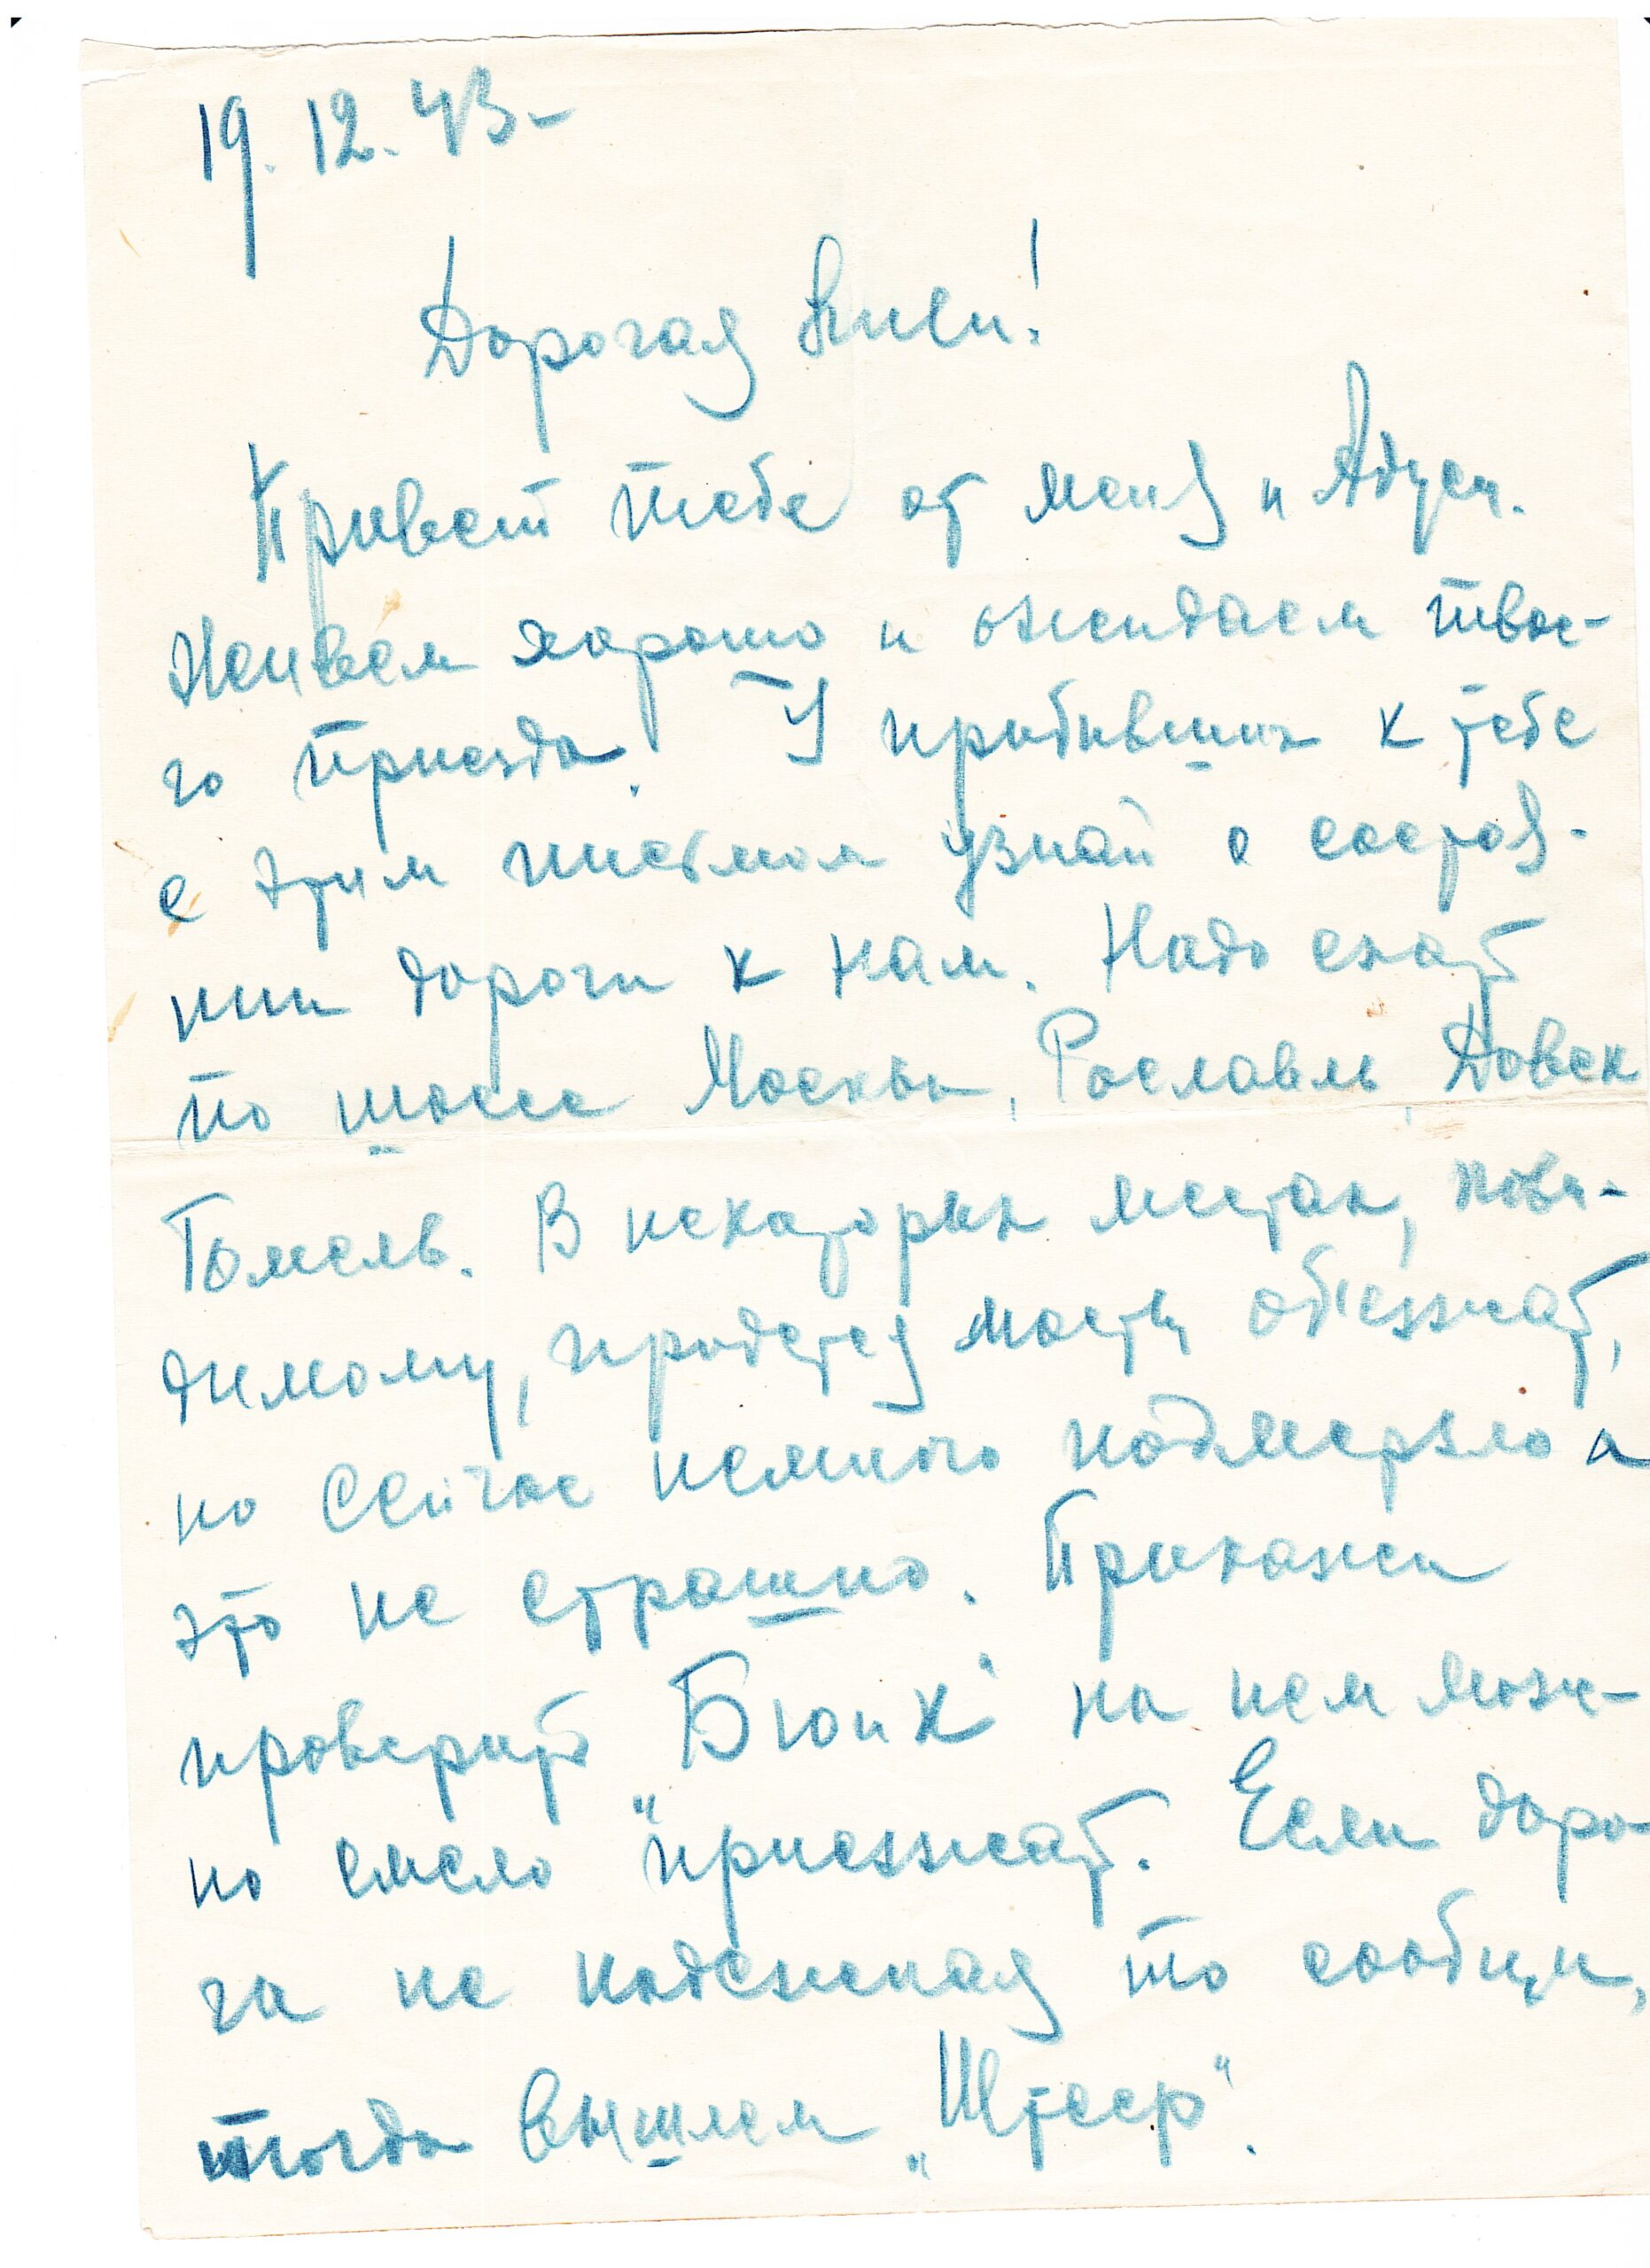 19.12.43-
Дорогая Лили!
Привет тебе от меня и Адуси.
Живем хорошо и ожидаем твое-
го приезда. У прибывших к тебе
с этим письмом узнай о состоя-
нии дороги к нам. Надо ехать
по шоссе Москва, Рославль, Довск
Гомель. В некоторых местах, пови-
димому, придется мосты об'езжать,
но сейчас немного подмерзло и
это не страшно. Прикажи
проверить „Бюик" на нем мож-
но смело приезжать. Если доро-
га не надежная то сообщи,
тогда вышлем „Штеер".